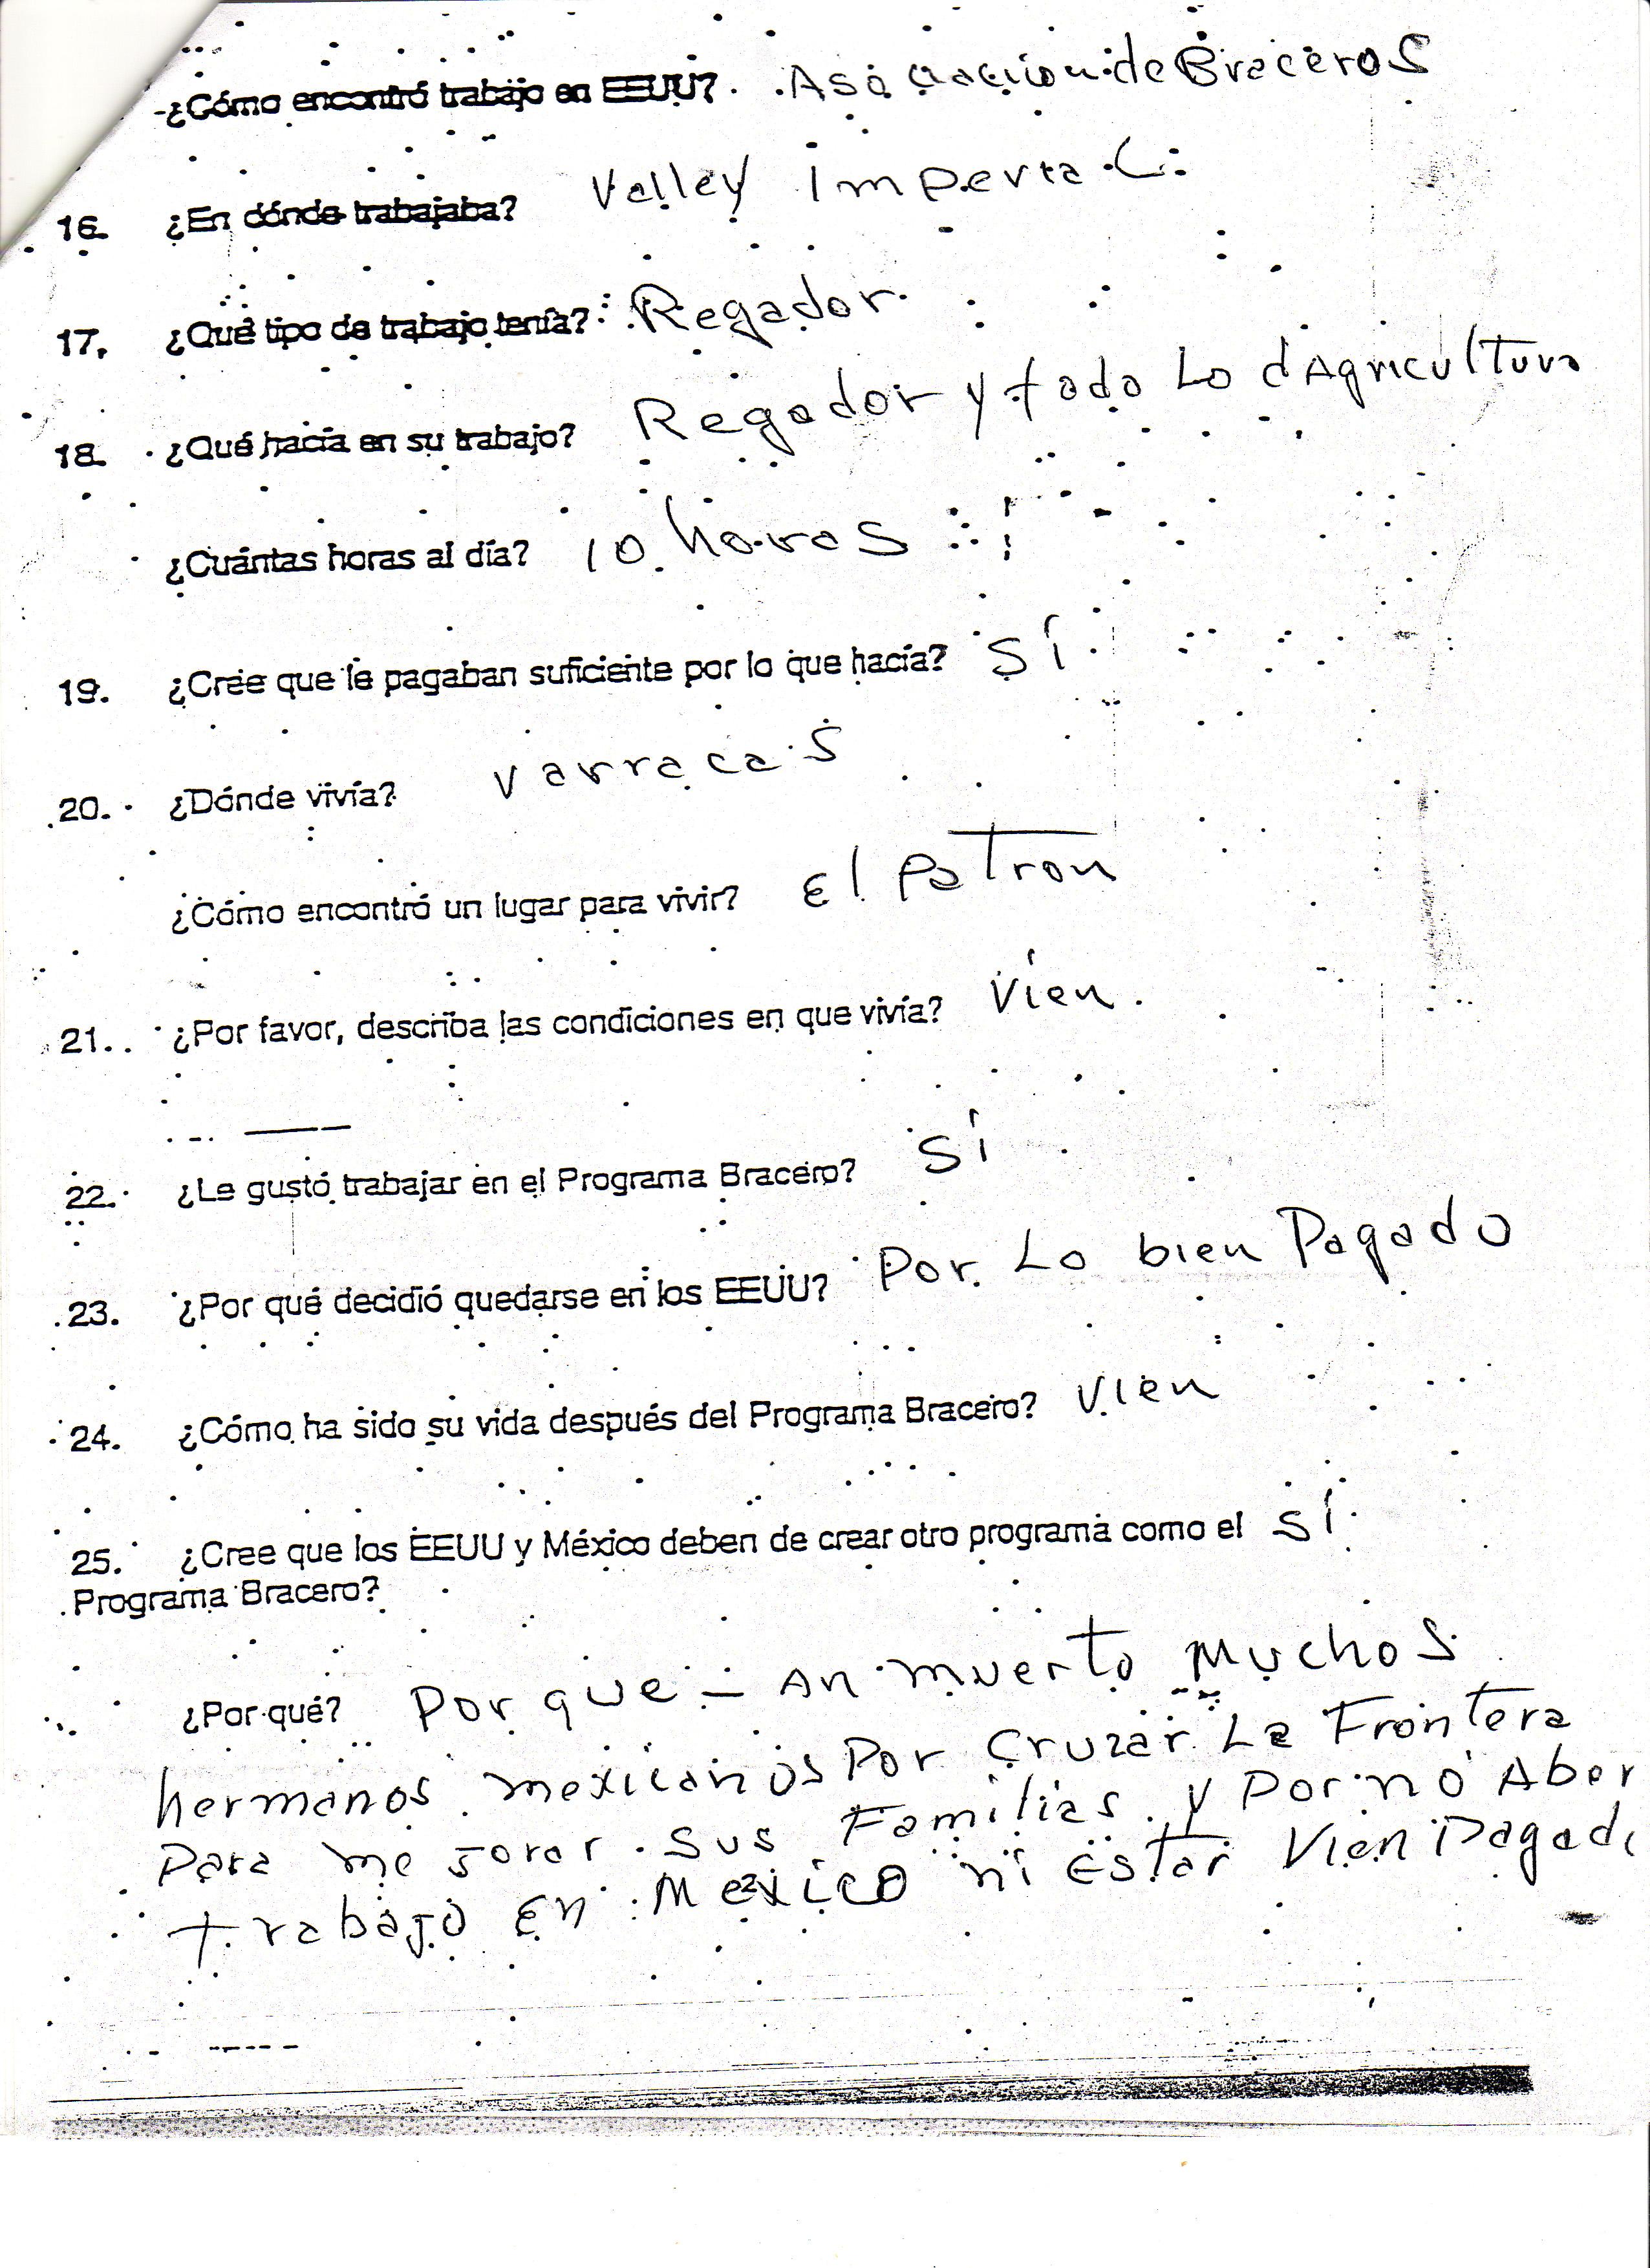 ¿Cómo encontró trabajo en EEUU? Asociacion de Braceros
16. ¿En dónde trabajaba? Valley imperial
17. ¿Qué tipo de trabajo tenía? Regador
18. ¿Qué hacía en su trabajo? Regador y todo Lo dAgricultura
¿Cuántas horas al día? 10 horas
19. ¿Cree que le pagaban suficiente por lo que hacía? Sí
20. ¿Dónde vivía? varracas
¿Cómo encontró un lugar para vivir? El Patron
21. ¿Por favor, describa las condiciones en que vivía? Vien.
22. ¿Le gustó trabajar en el Programa Bracero? Sí
23. ¿Por qué decidió quedarse en los EEUU? Por Lo bien Pagado
24. ¿Cómo ha sido su vida después del Programa Bracero? Vien
25. ¿Cree que los EEUU y México deben de crear otro programa como el Sí
Programa Bracero?
¿Por qué? Por que - An muerto Muchos
hermanos mexicanos Por Cruzar La Frontera
Para me Jorar sus Familias y Por no Aber
trabajo En Mexico ni Estar Vien Pagado